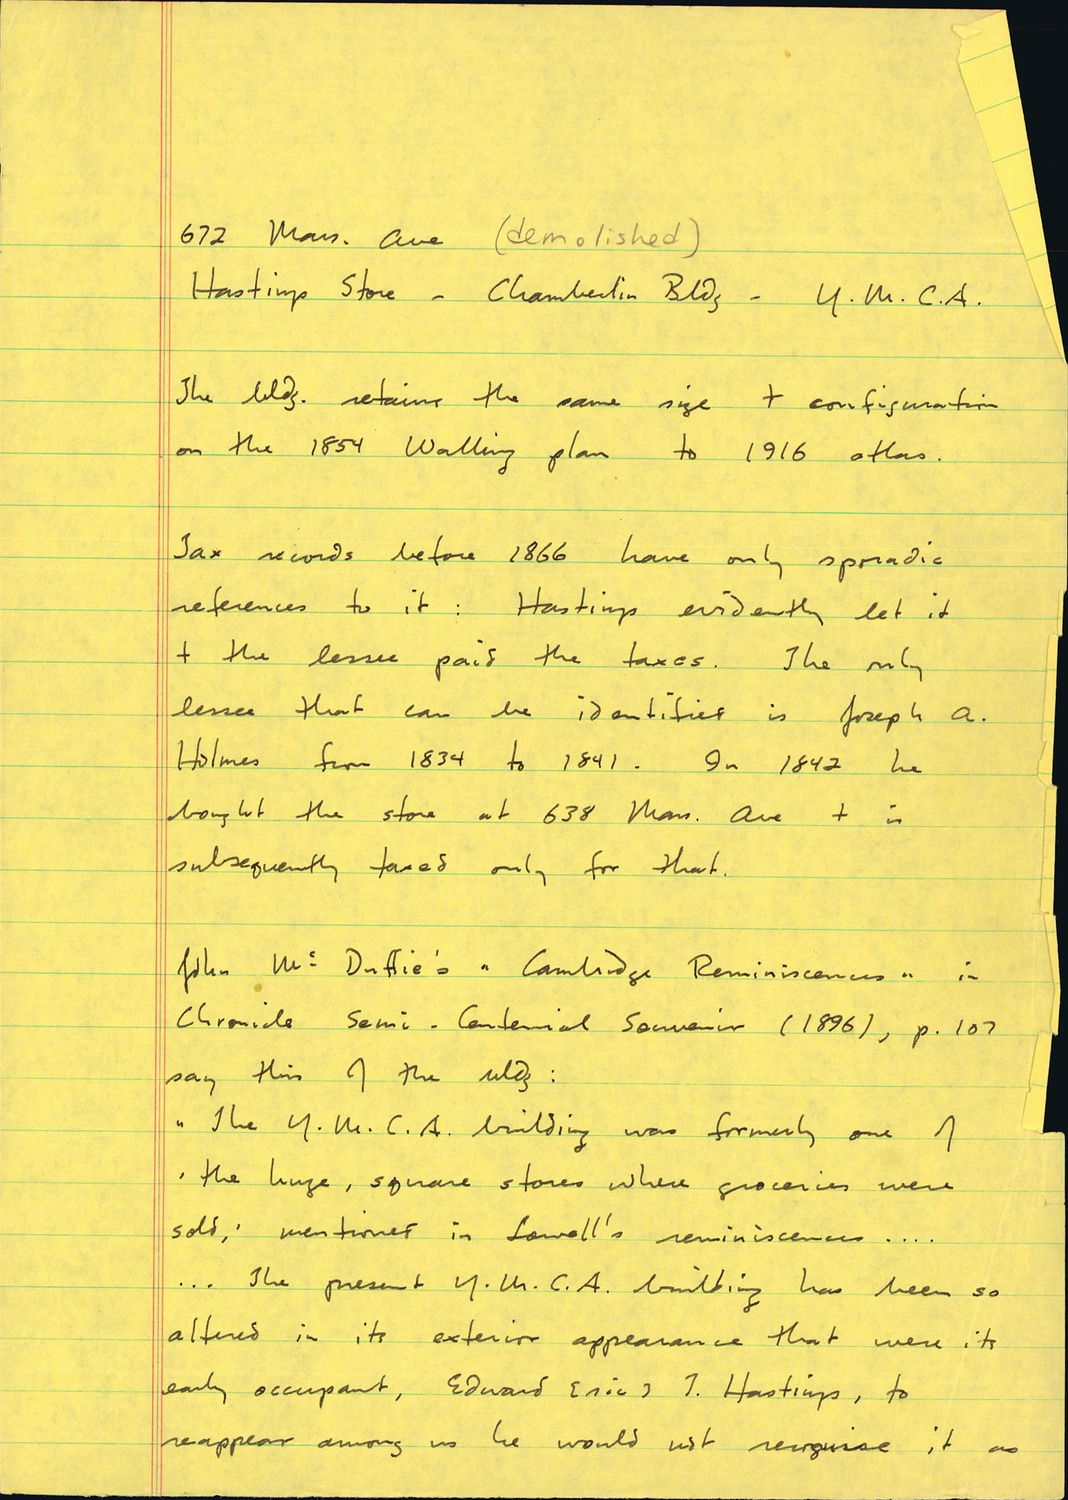 672 Mass. Ave (demolished)
Hastings Store - Chamberlin Bldg - Y.M.C.A.
The bldg. retains the same size + configuration
on the 1854 Walling plan to 1916 atlas.
Tax records before 1866 have only sporadic
references to it : Hastings evidently let it
+ the lessee paid the taxes. The only
lessee that can be identified is Joseph A.
Holmes from 1834 to 1841. In 1842 he
bought the store at 638 Mass. Ave + is
subsequently taxed only for that.
John Mc Duffie's "Cambridge Reminiscences" in
Chronicle Semi-Centennial Souvenir (1896), p. 107
say this of the bldg :
"The Y.M.C.A. building was formerly one of
'the huge, square stores where groceries were
sold,' mentioned in Lowell's reminiscences ....
... The present Y.M.C.A. building has been so
altered in its exterior appearance that were its
early occupant, Edward [sic] T. Hastings, to
reappear among us he would not recognise it as